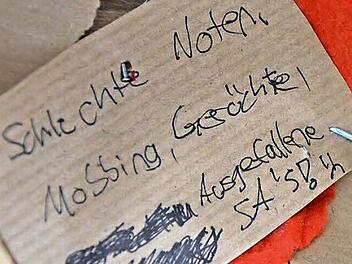 Schlechte Noten,
Mobbing, Gerüchte,
Ausgefallene
SA!